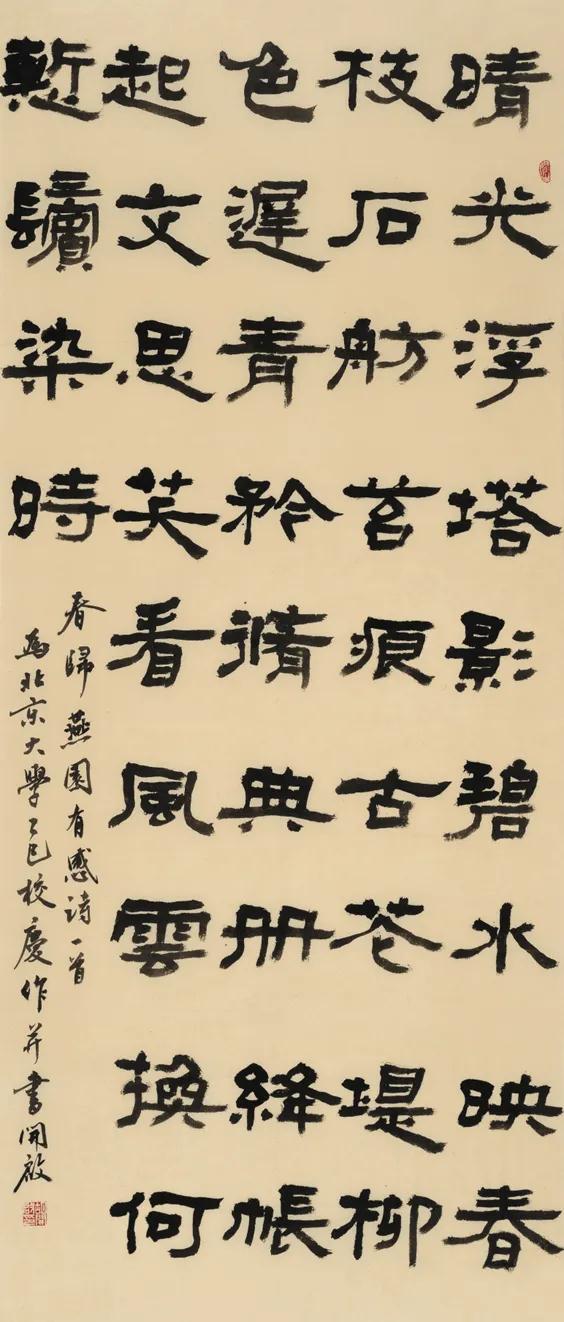 晴光浮塔影碧水映春
枝石舫苔痕古花堤柳
色遲青衿脩典冊絳帳
起文思笑看風雲換何
慙鬢染時
春歸燕園有感詩一首
為北京大學乙巳校慶作并書開啟